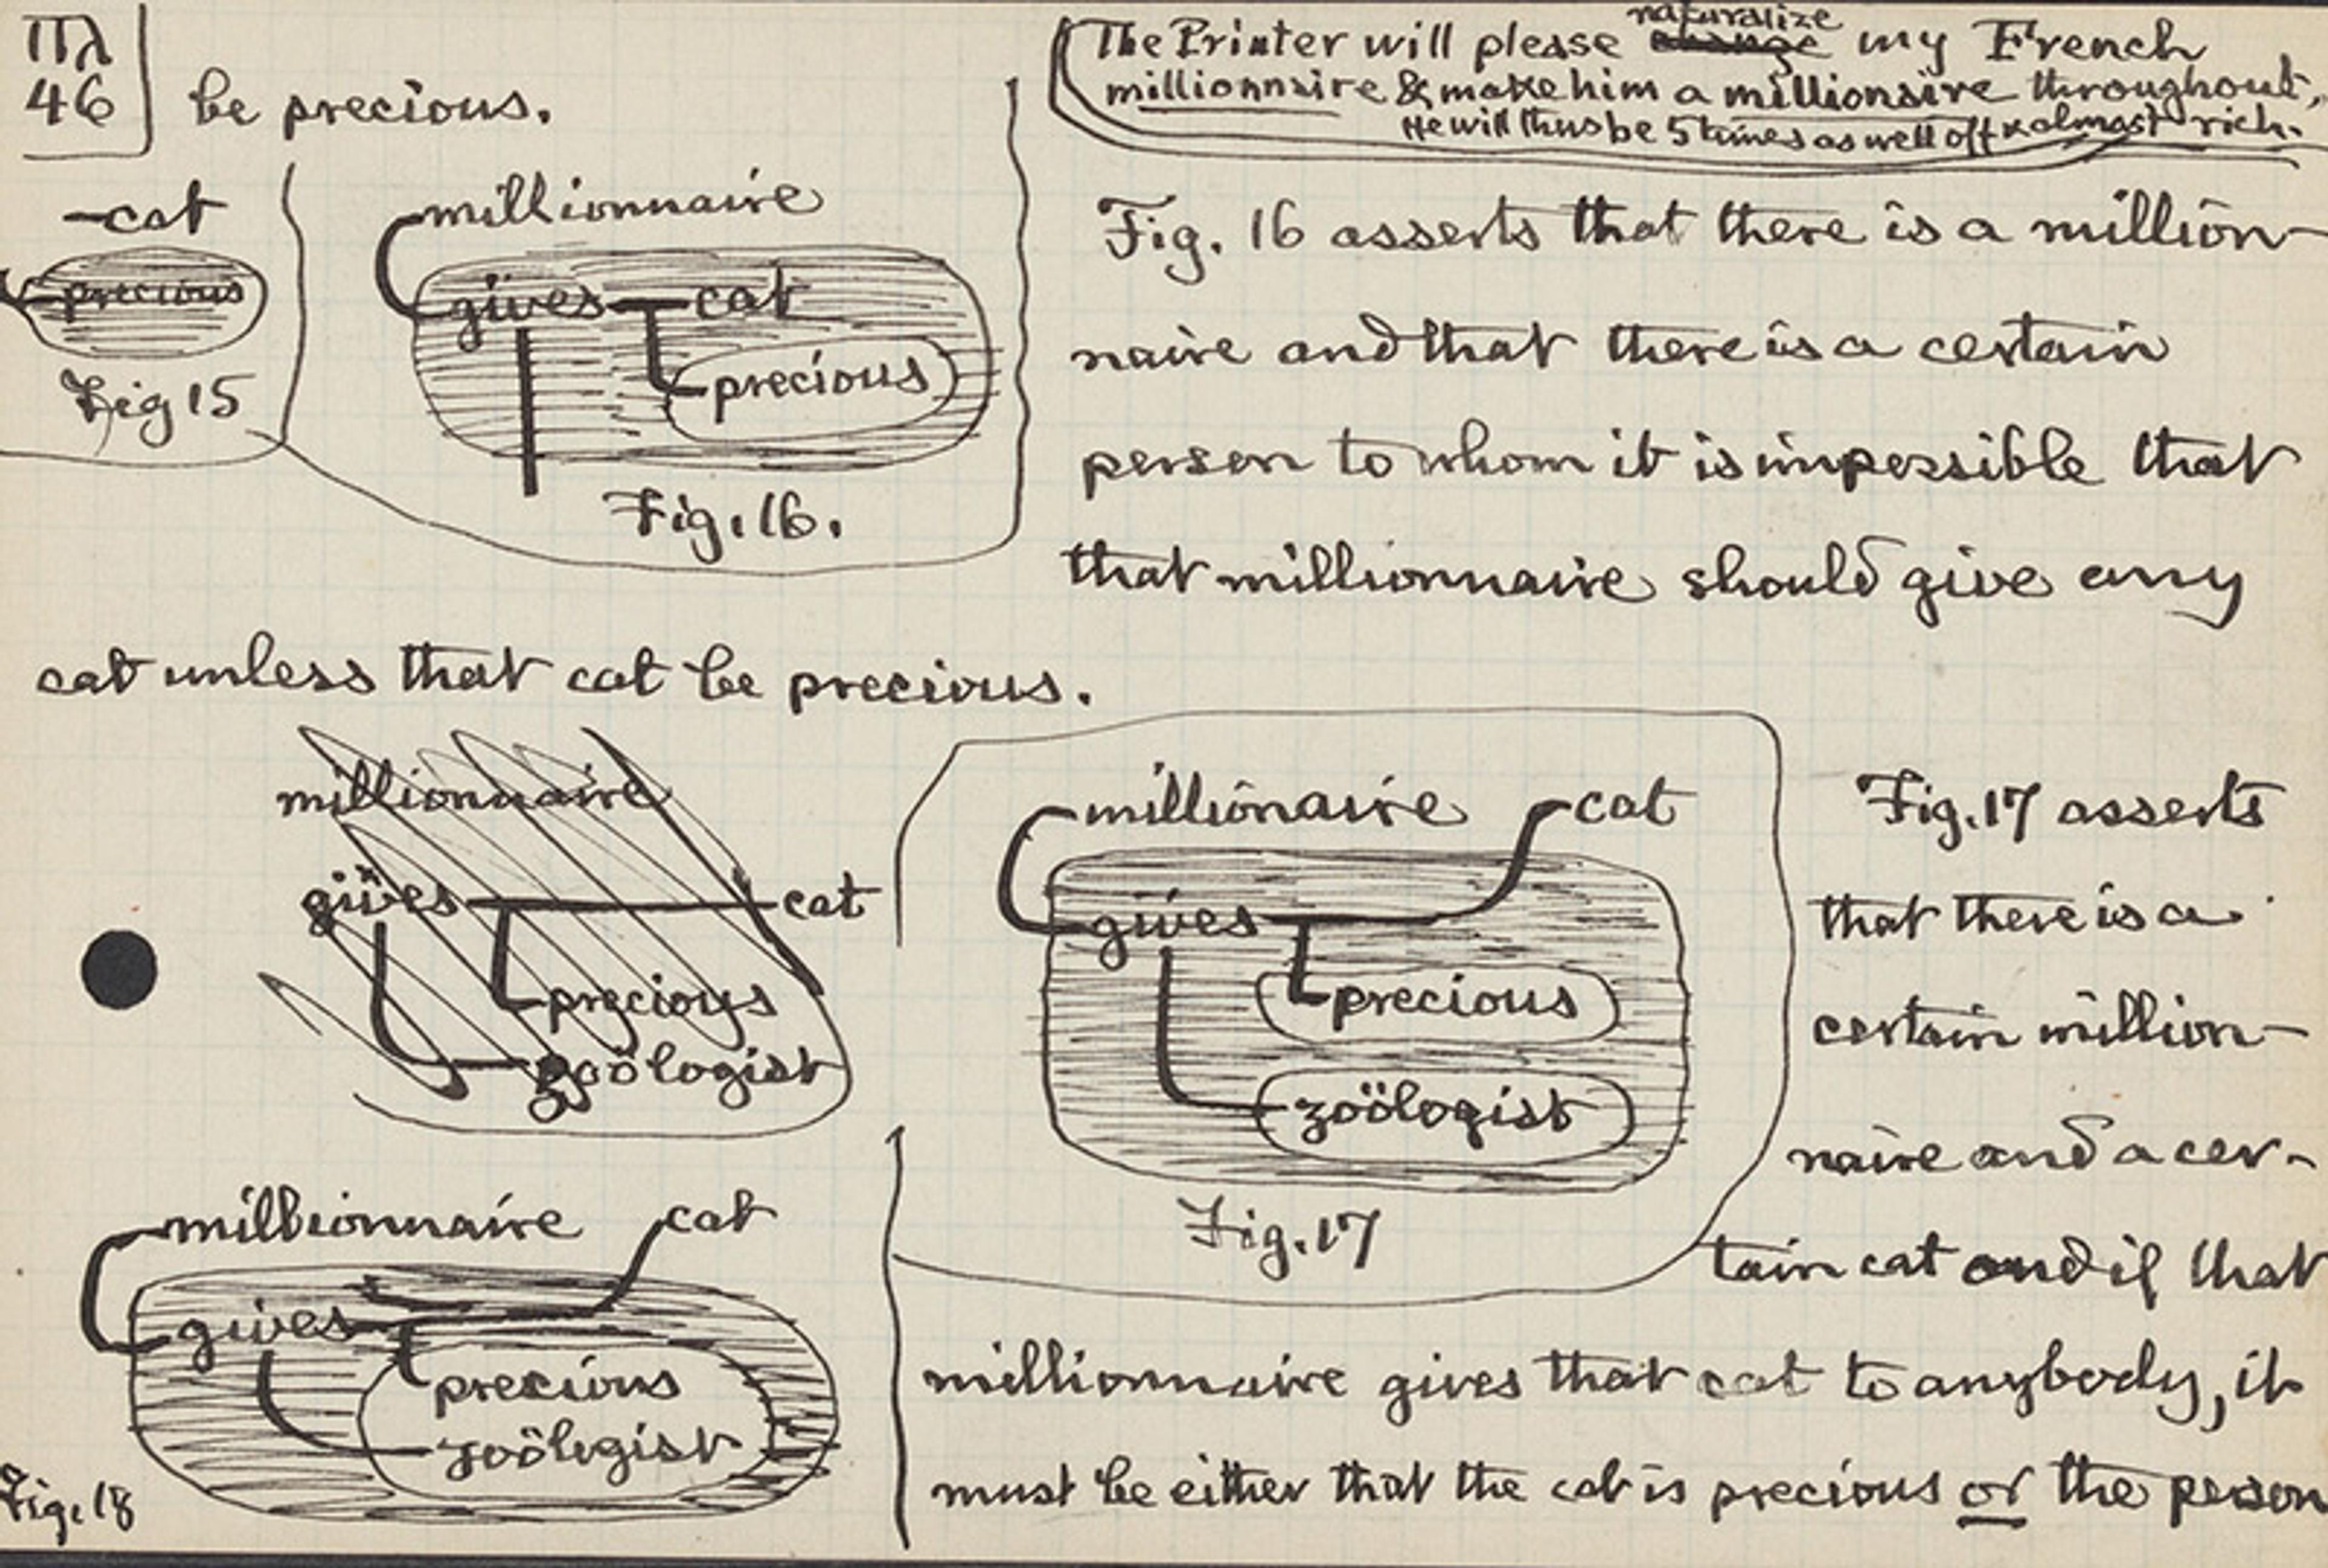 Πλ
46
be precious.
The Printer will please naturalize my French
millionnaire & make him a millionaire throughout.
He will thus be 5 times as well off & almost rich.
cat
precious
Fig 15
millionnaire
gives cat
precious
Fig. 16.
Fig. 16 asserts that there is a million-
naire and that there is a certain
person to whom it is impossible that
that millionnaire should give any
cat unless that cat be precious.
millionnaire
gives cat
precious
zoölogist
millionaire cat
gives
precious
zoölogist
Fig. 17
Fig. 17 asserts
that there is a
certain million-
naire and a cer-
tain cat and if that
millionnaire gives that cat to anybody, it
must be either that the cat is precious or the person
millionnaire cat
gives
precious
zoölogist
Fig. 18